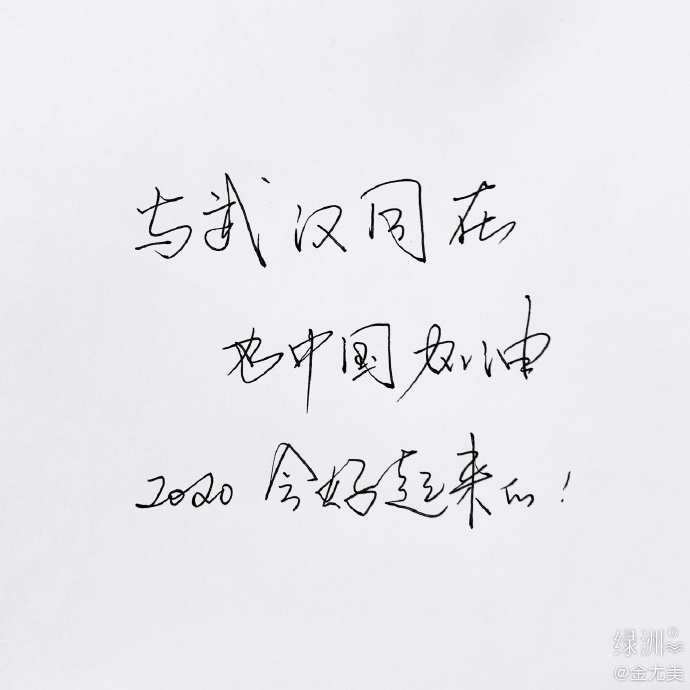 与武汉同在
为中国加油
2020会好起来的！
绿洲
@金尤美